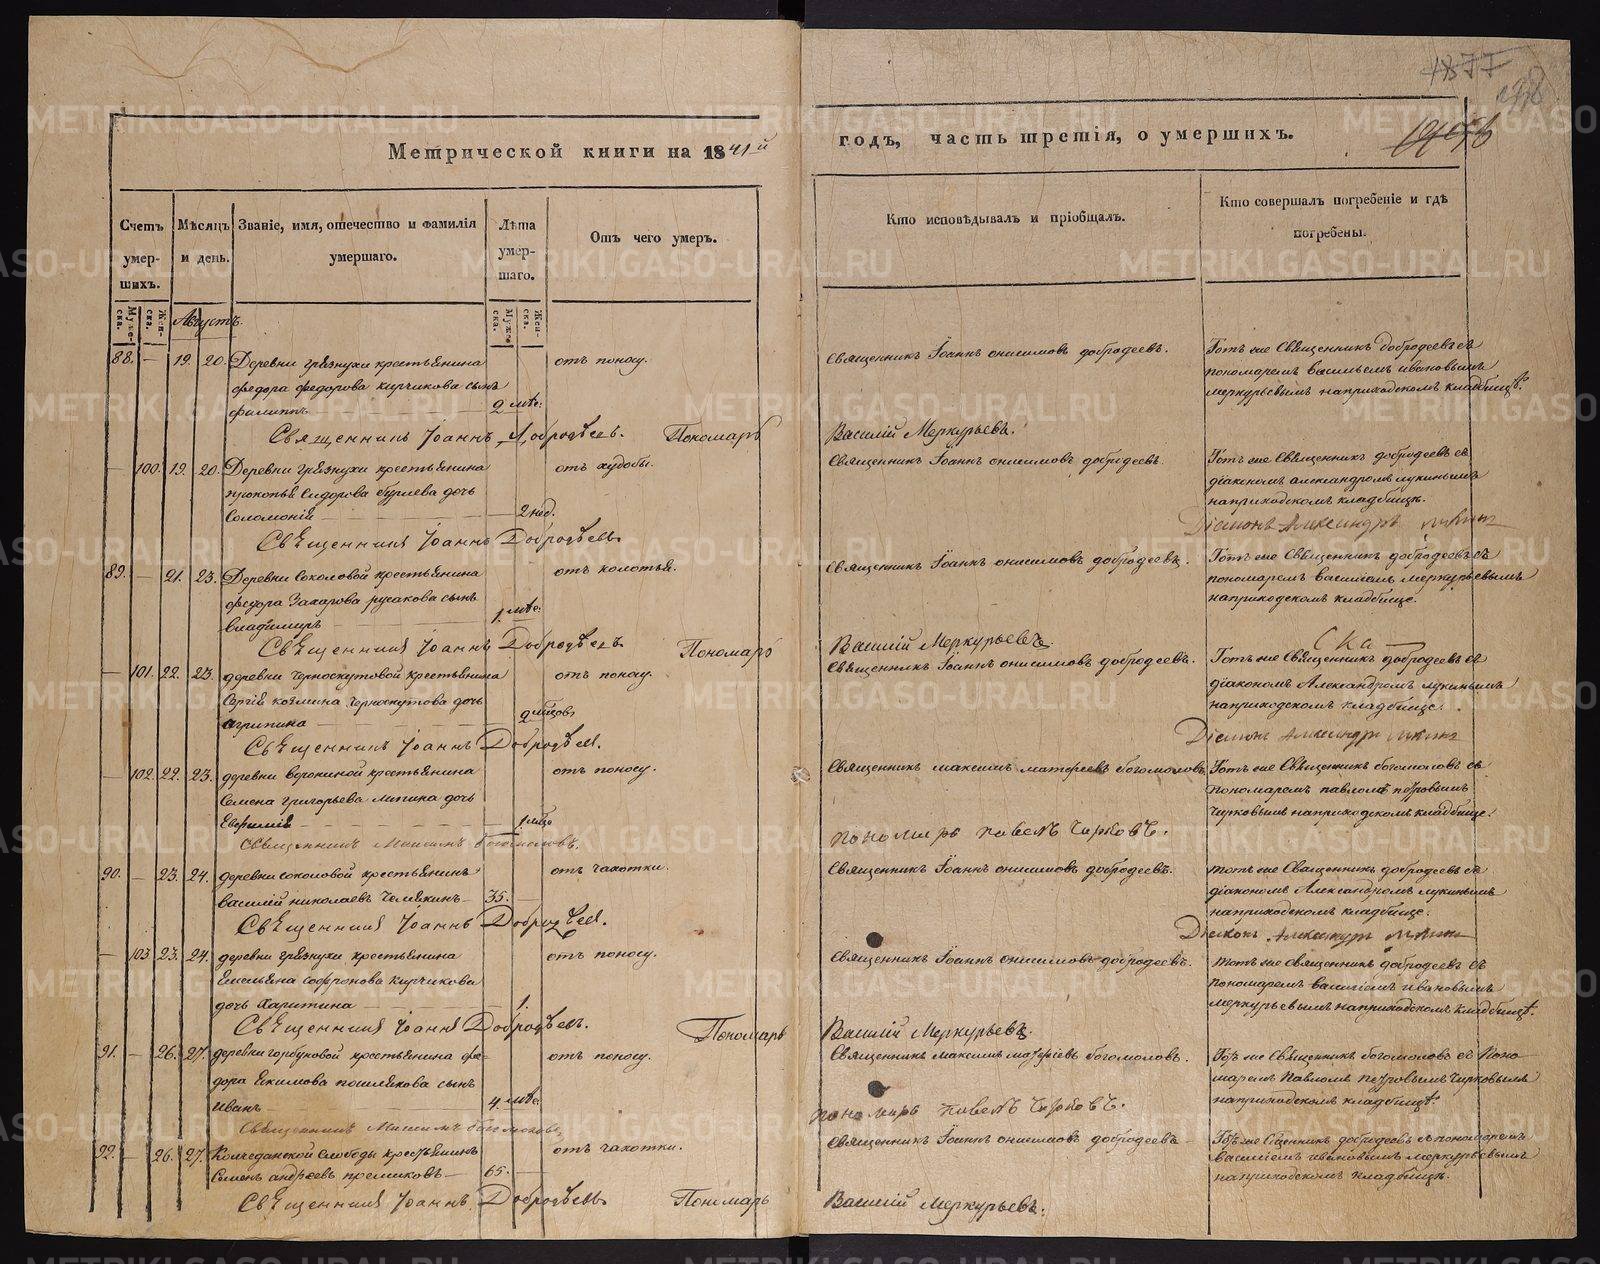 1877
Метрической книги на 1841й
годъ, часть третія, о умершихъ.
Счетъ умер-шихъ.
Мѣсяцъ и день.
Званіе, имя, отечество и фамилія умершаго.
Лѣта умер-шаго.
Отъ чего умеръ.
Кто исповѣдывалъ и пріобщалъ.
Кто совершалъ погребеніе и гдѣ погребены.
Муже-ска.
Жен-ска.
Муже-ска.
Жен-ска.
Августъ.
88. — 19. 20. Деревни грязнухи крестьянина
федора федорова кирчикова сынъ
филиппъ 2 мѣс:
отъ поносу.
Священникъ Іоаннъ онисимовъ добродеевъ.
Тотъ же Священникъ добродеевъ съ
пономаремъ васильемъ ивановымъ
меркурьевымъ наприходскомъ кладбищѣ.
Священникъ Іоаннъ Добродѣевъ. Пономарь
Василій Меркурьевъ.
— 100. 19. 20. Деревни грязнухи крестьянина
прокопья Сидорова бурлева дочь
Соломонія 2 нед.
отъ худобы.
Священникъ Іоаннъ онисимовъ добродеевъ.
Тотъ же Священникъ добродеевъ съ
діакономъ александромъ лукинымъ
наприходскомъ кладбищѣ.
Діаконъ Александръ Лукинъ
Священникъ Іоаннъ Добродѣевъ
89. — 21. 23. Деревни Соколовой крестьянина
федора Захарова русакова сынъ
владимиръ 1. мѣс:
отъ колотья.
Священникъ Іоаннъ онисимовъ добродеевъ.
Тотъ же Священникъ добродеевъ съ
пономаремъ василіемъ меркурьевымъ
наприходскомъ кладбище.
Священникъ Іоаннъ Добродѣевъ Пономарь
Василій Меркурьевъ.
— 101. 22. 23. деревни черноскутовой крестьянина
Сергія козмина черноскутова дочь
агрипина 2 мѣсцов
отъ поносу.
Священникъ Іоаннъ онисимовъ добродеевъ.
Тотъ же Священникъ добродеевъ съ
діакономъ Александромъ лукинымъ
наприходскомъ кладбище.
Діаконъ Александръ Лукинъ
Священникъ Іоаннъ Добродѣевъ.
— 102. 22. 23. деревни
Семена григорьева дочь
Евфимія 1 мѣс
отъ поносу.
Священникъ максимъ матфеевъ богомоловъ
Тотъ же Священникъ богомоловъ съ
пономаремъ павломъ петровымъ
чирковымъ наприходскомъ кладбище.
Священникъ Максимъ богомоловъ.
пономарь павелъ чирковъ.
90. — 23. 24. деревни соколовой крестьянинъ
василій николаевъ 35.
отъ чахотки.
Священникъ Іоаннъ онисимовъ добродеевъ.
тотъ же Священникъ добродеевъ съ
діакономъ Александромъ лукинымъ
наприходскомъ кладбище.
Священникъ Іоаннъ Добродѣевъ.
Діаконъ Александръ Лукинъ
— 103 23. 24. деревни грязнухи крестьянина
Емельяна софронова кирчикова
дочь Харитина 1.
отъ поносу.
Священникъ Іоаннъ онисимовъ добродеевъ.
тотъ же Священникъ добродеевъ съ
пономаремъ василіемъ ивановымъ
меркурьевымъ наприходскомъ кладбищѣ.
Священникъ Іоаннъ Добродѣевъ. Пономарь
Василій Меркурьевъ.
91. — 26. 27. деревни горбуновой крестьянина фе-
дора екимова сынъ
иванъ 4. мѣс:
отъ поносу.
Священникъ максимъ матфіевъ богомоловъ.
Тотъ же Священникъ богомоловъ съ поно-
маремъ Павломъ петровымъ чирковымъ
наприходскомъ кладбищѣ.
Священникъ Максимъ богомоловъ
пономарь павелъ чирковъ.
92. — 26. 27. Колчеданской Слободы крестьянинъ
Семенъ андреевъ 65.
отъ чахотки.
Священникъ Іоаннъ онисимовъ добродеевъ
Тотъ же Священникъ добродеевъ съ пономаремъ
василіемъ ивановымъ меркурьевымъ
наприходскомъ кладбищѣ.
Священникъ Іоаннъ Добродѣевъ Пономарь
Василій Меркурьевъ.
METRIKI.GASO-URAL.RU